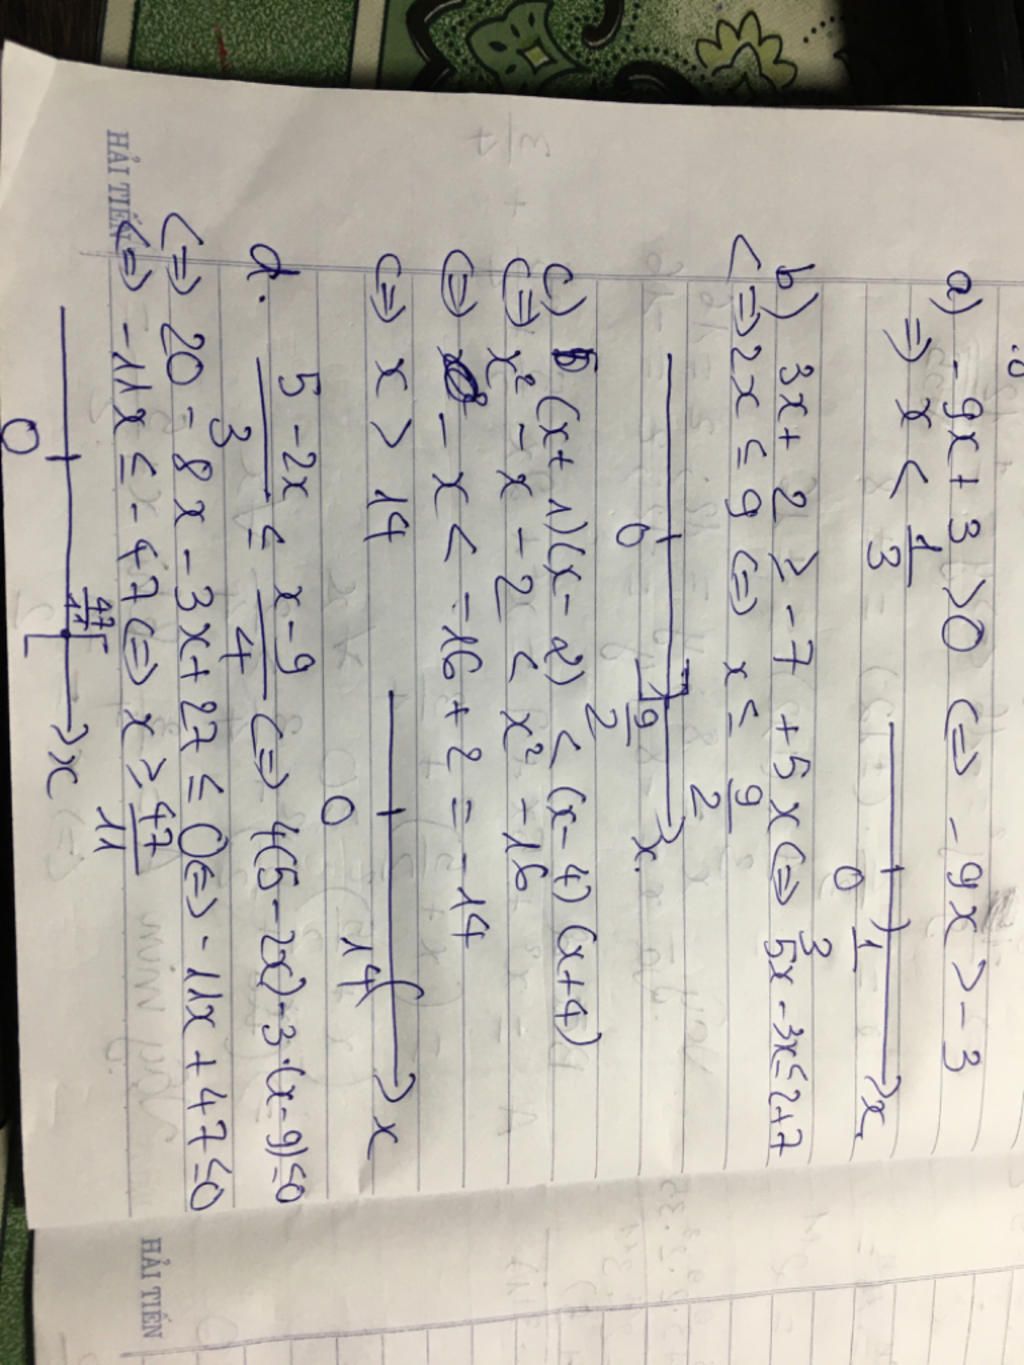 a) -9x + 3 > 0 (=) -9x > -3
=) x < 1/3
0 1 x
b) 3x + 2 ≥ -7 + 5x (=) 5x - 3x ≤ 2+7
(=) 2x ≤ 9 (=) x ≤ 9/2
0 9/2 x
c) (x+1)(x-2) < (x-4)(x+4)
(=) x² - x - 2 < x² - 16
(=) - x < -16 + 2 = -14
(=) x > 14
0 14 x
d. 5-2x/3 ≤ x-9/4 (=) 4(5-2x) - 3.(x-9) ≤ 0
(=) 20 - 8x - 3x + 27 ≤ 0 (=) -11x + 47 ≤ 0
(=) -11x ≤ -47 (=) x ≥ 47/11
0 47/11 x
HẢI TIẾN
HẢI TIẾN